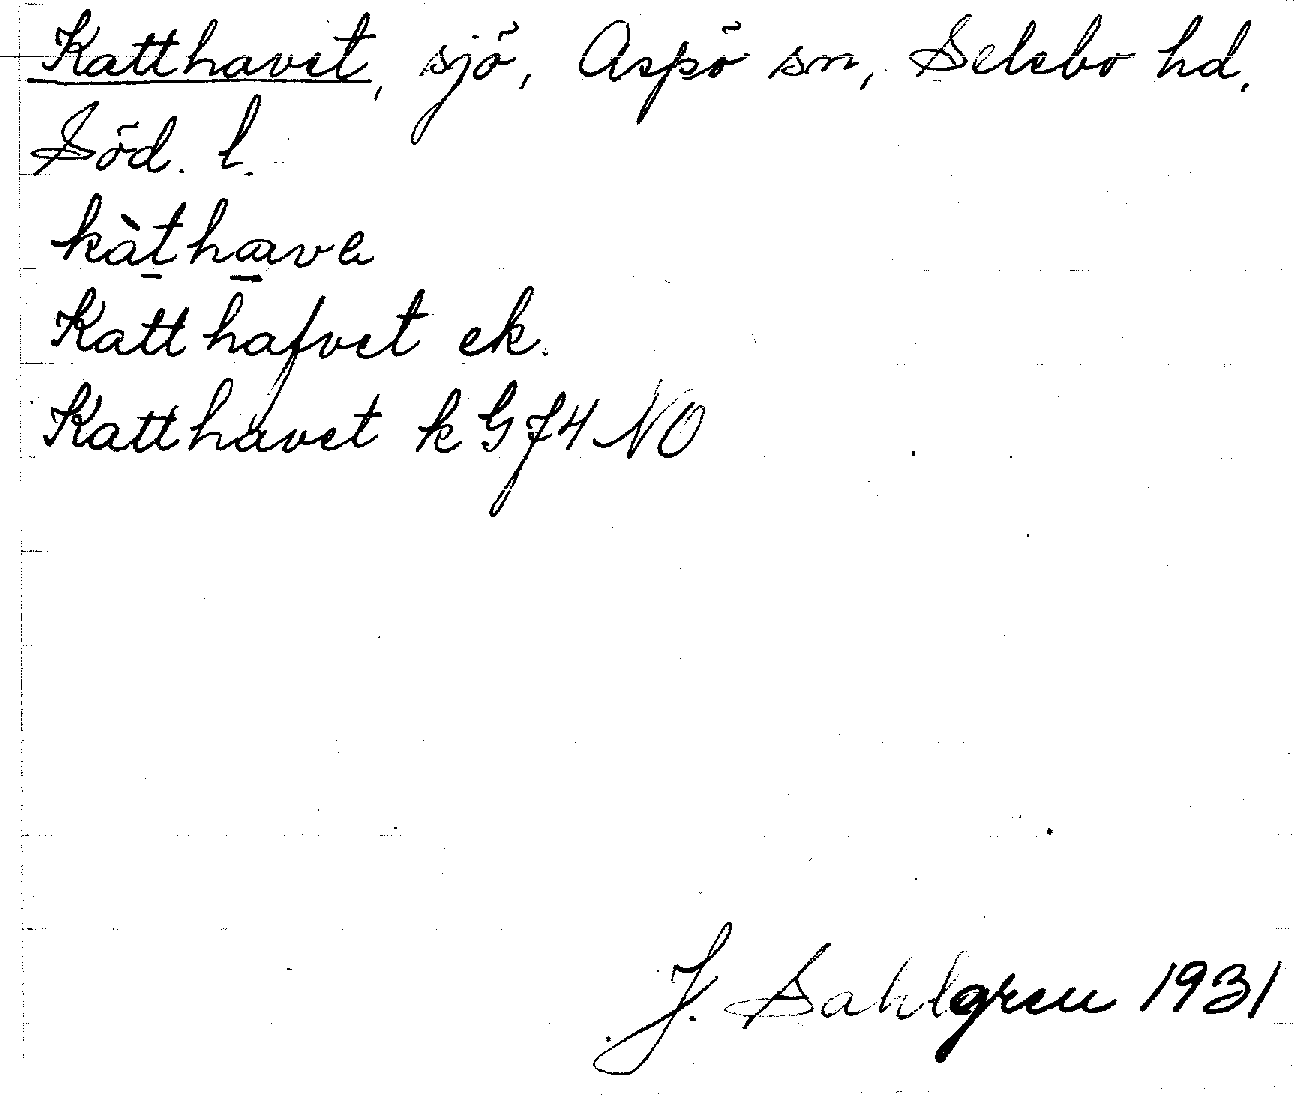 Katthavet, sjö, Aspö sn, Selebo hd,
Söd. l.
kàthava
Katthafvet ek.
Katthavet k G74 NO
J. Sahlgren 1931